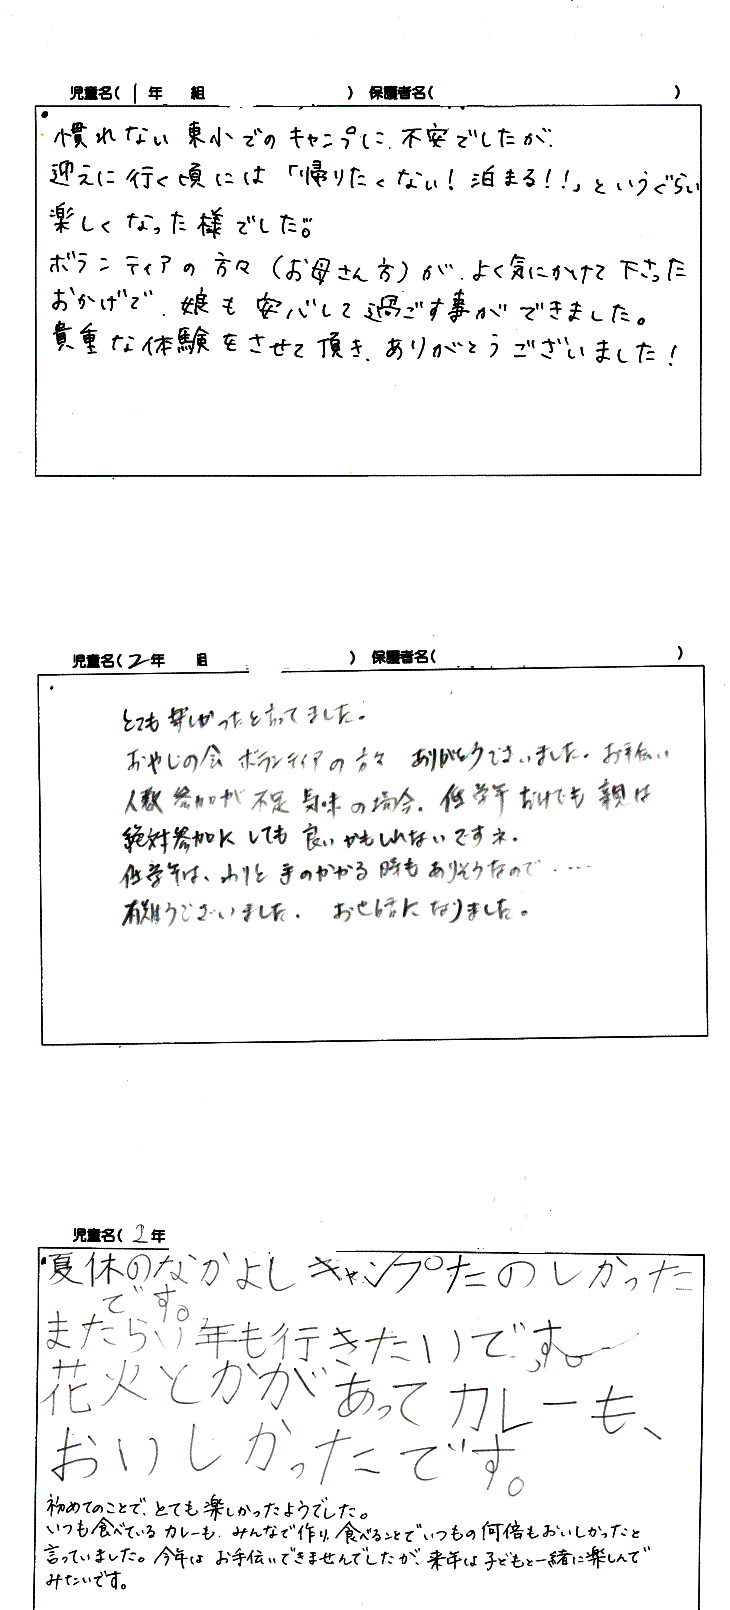 児童名( 1 年 組 ) 保護者名( )
慣れない東小でのキャンプに、不安でしたが、
迎えに行く頃には「帰りたくない!泊まる!!」というぐらい
楽しくなった様でした。
ボランティアの方々(お母さん方)が、よく気にかけて下さった
おかげで、娘も安心して過ごす事ができました。
貴重な体験をさせて頂き、ありがとうございました!
児童名( 2 年 組 ) 保護者名( )
とても楽しかったと言ってました。
おやじの会 ボランティアの方々 ありがとうございました。お手伝い
人数 参加が 不足 気味の場合、低学年だけでも 親は
絶対参加に しても 良いかもしれないですネ。
低学年は、わりと 手のかかる 時も ありそうなので・・・・
有難うございました。 お世話に なりました。
児童名( 2 年
夏休のなかよしキャンプたのしかった
です。
またらい年も行きたいです。
花火とかがあってカレーも、
おいしかったです。
初めてのことで、とても楽しかったようでした。
いつも食べているカレーも、みんなで作り、食べることでいつもの何倍もおいしかったと
言っていました。今年は お手伝いできませんでしたが、来年は子どもと一緒に楽しんで
みたいです。